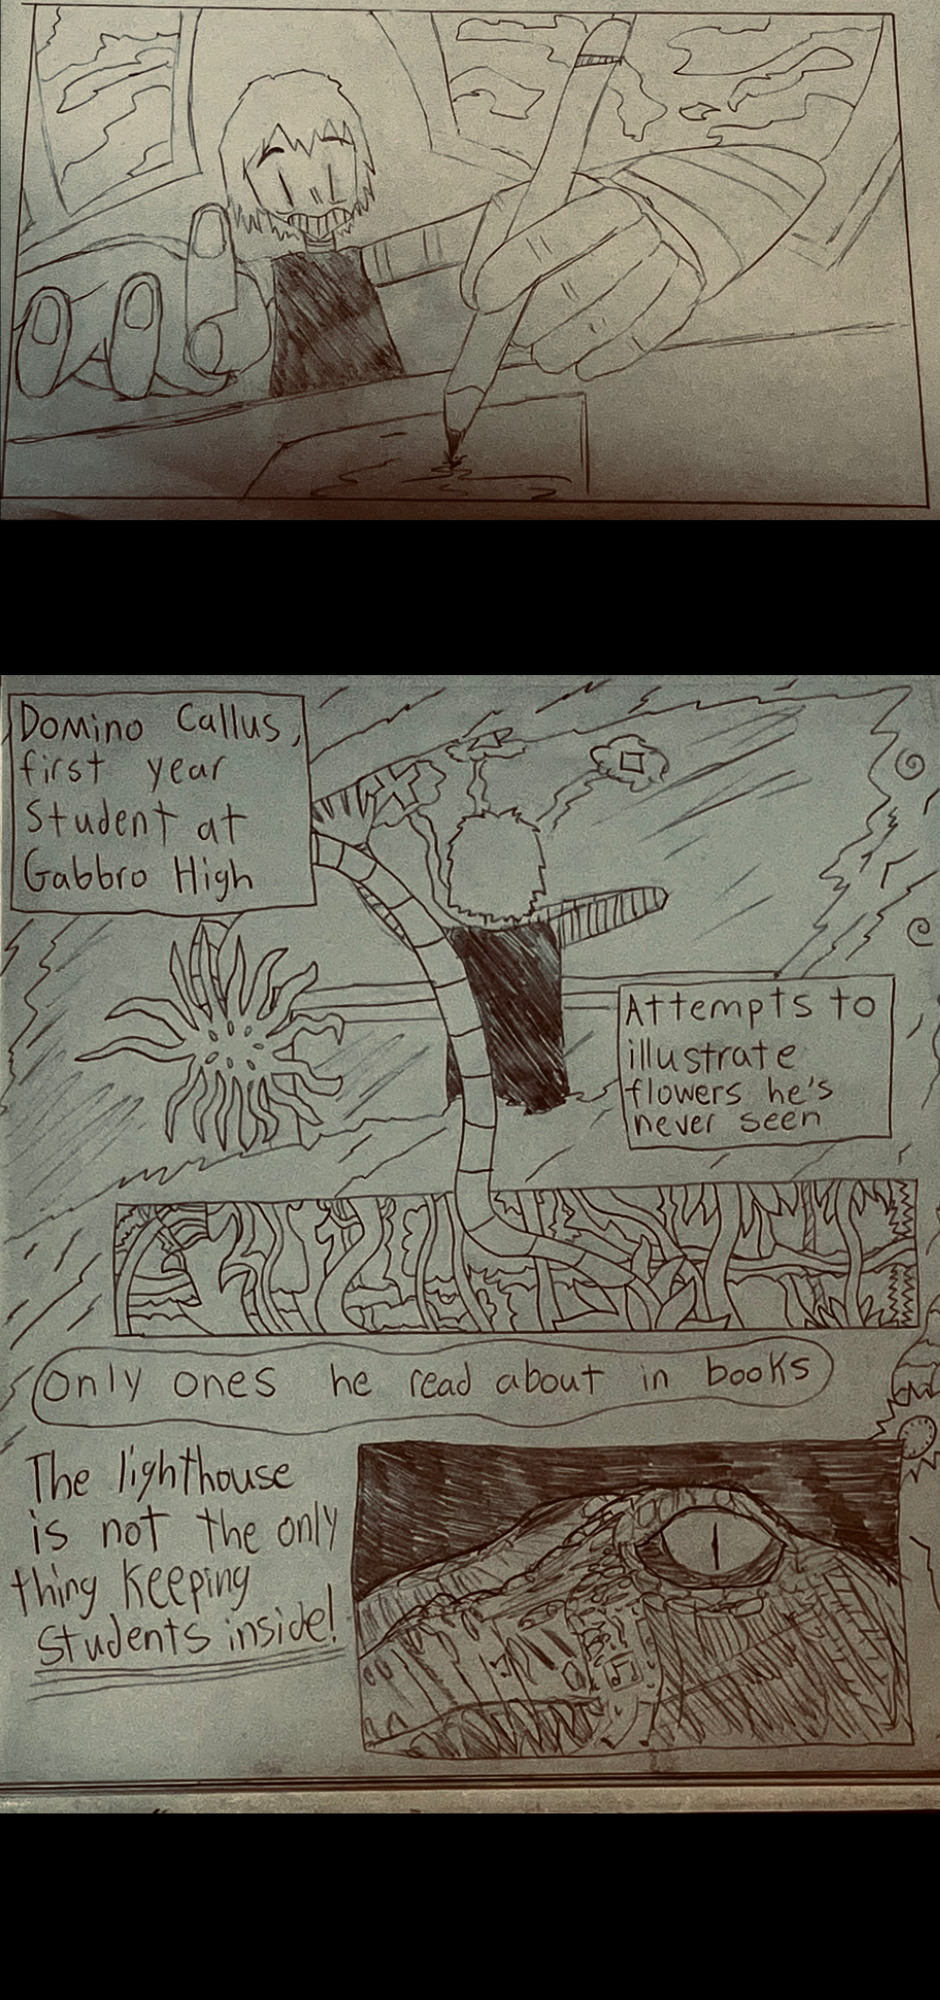 Domino Callus,
first year
student at
Gabbro High
Attempts to
illustrate
flowers he's
never seen
only ones he read about in books
The lighthouse
is not the only
thing keeping
students inside!